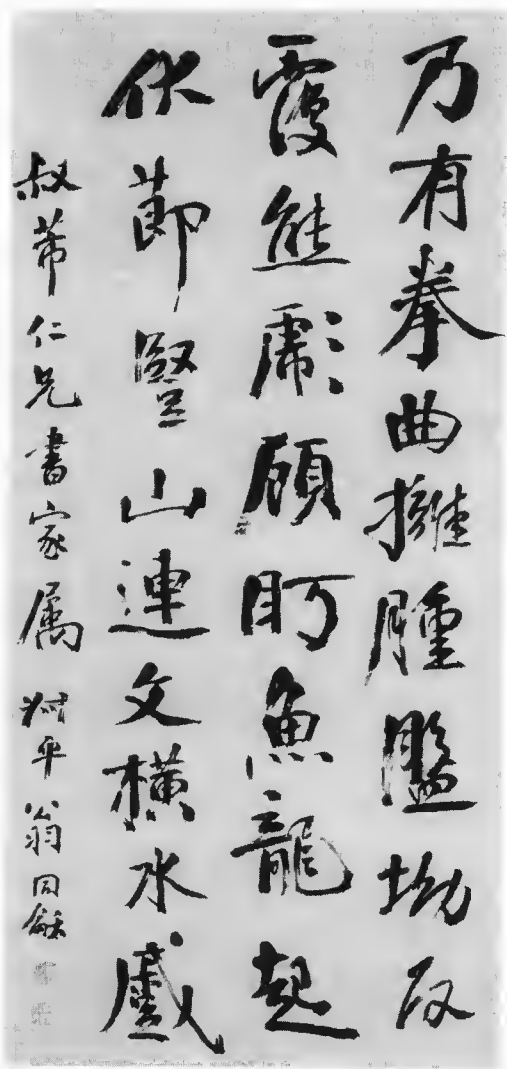 乃有拳曲擁腫盤坳反
覆熊彪顧盼魚龍起
伏莭豎山連文橫水蹙
叔芾仁兄書家属 叔平翁同龢